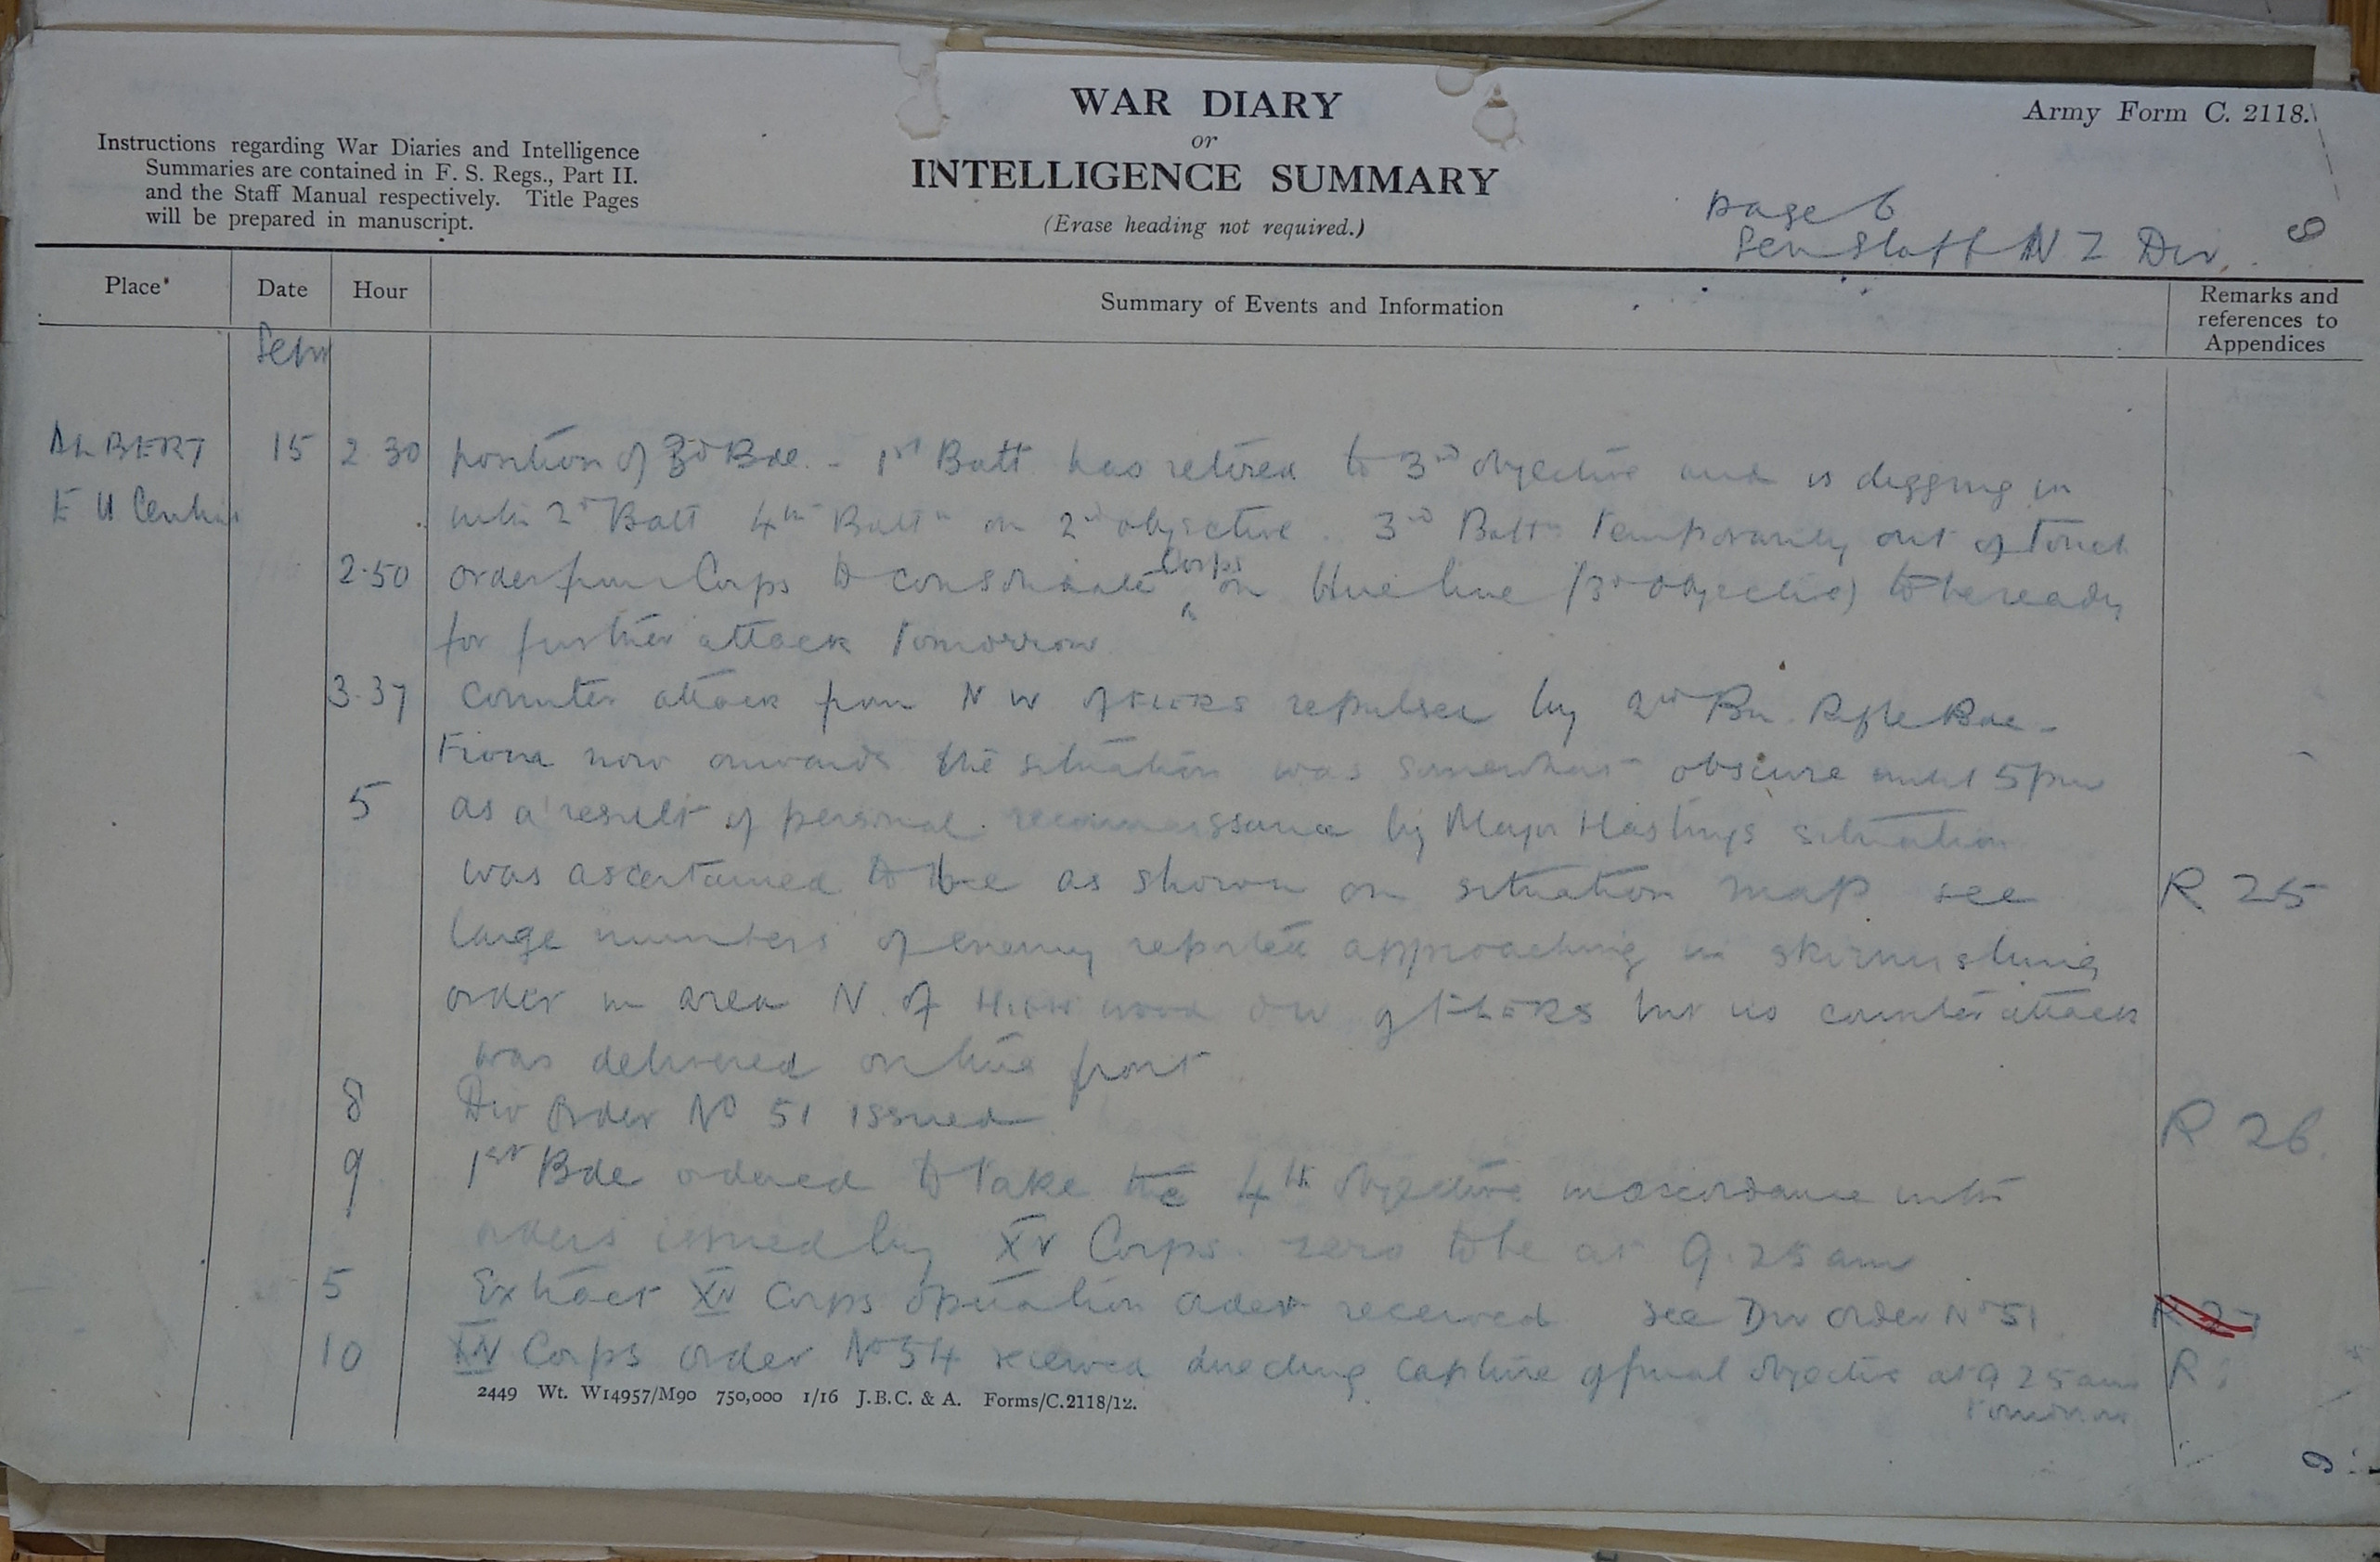 WAR DIARY
or
INTELLIGENCE SUMMARY
(Erase heading not required.)
Army Form C. 2118.
Instructions regarding War Diaries and Intelligence
Summaries are contained in F. S. Regs., Part II.
and the Staff Manual respectively. Title Pages
will be prepared in manuscript.
page 6
Gen Staff N Z Div.
Place Date Hour Summary of Events and Information Remarks and
references to
Appendices
Sept
ALBERT 15 2 30 position of 3rd Bde. - 1st Batt has retired to 3rd objective and is digging in
E 11 Central with 2nd Batt 4th Battn on 2nd objective. 3rd Battn temporarily out of touch
2.50 order from Corps to consolidate Corps on blue line (3rd objective) to be ready
for further attack tomorrow
3.37 Counter attack from N W of FLERS repulsed by 2nd Bn. Rifle Bde -
From now onwards the situation was somewhat obscure until 5 pm
5 as a result of personal reconnaissance by Major Hastings situation
was ascertained to be as shown on situation map see R 25
large numbers of enemy reported approaching in skirmishing
order in area N. of HIGH wood of FLERS but no counter attack
was delivered on this front
8 Div Order No 51 issued R 26.
9 1st Bde ordered to take the 4th objective in accordance with
orders issued by XV Corps. zero to be at 9.25 am
5 Extract XV Corps operation order received see Div order No 51 R 27
10 XV Corps order No 54 received directing capture of final objective at 9 25 am R
tomorrow
2449 Wt. W14957/M90 750,000 1/16 J.B.C. & A. Forms/C.2118/12.